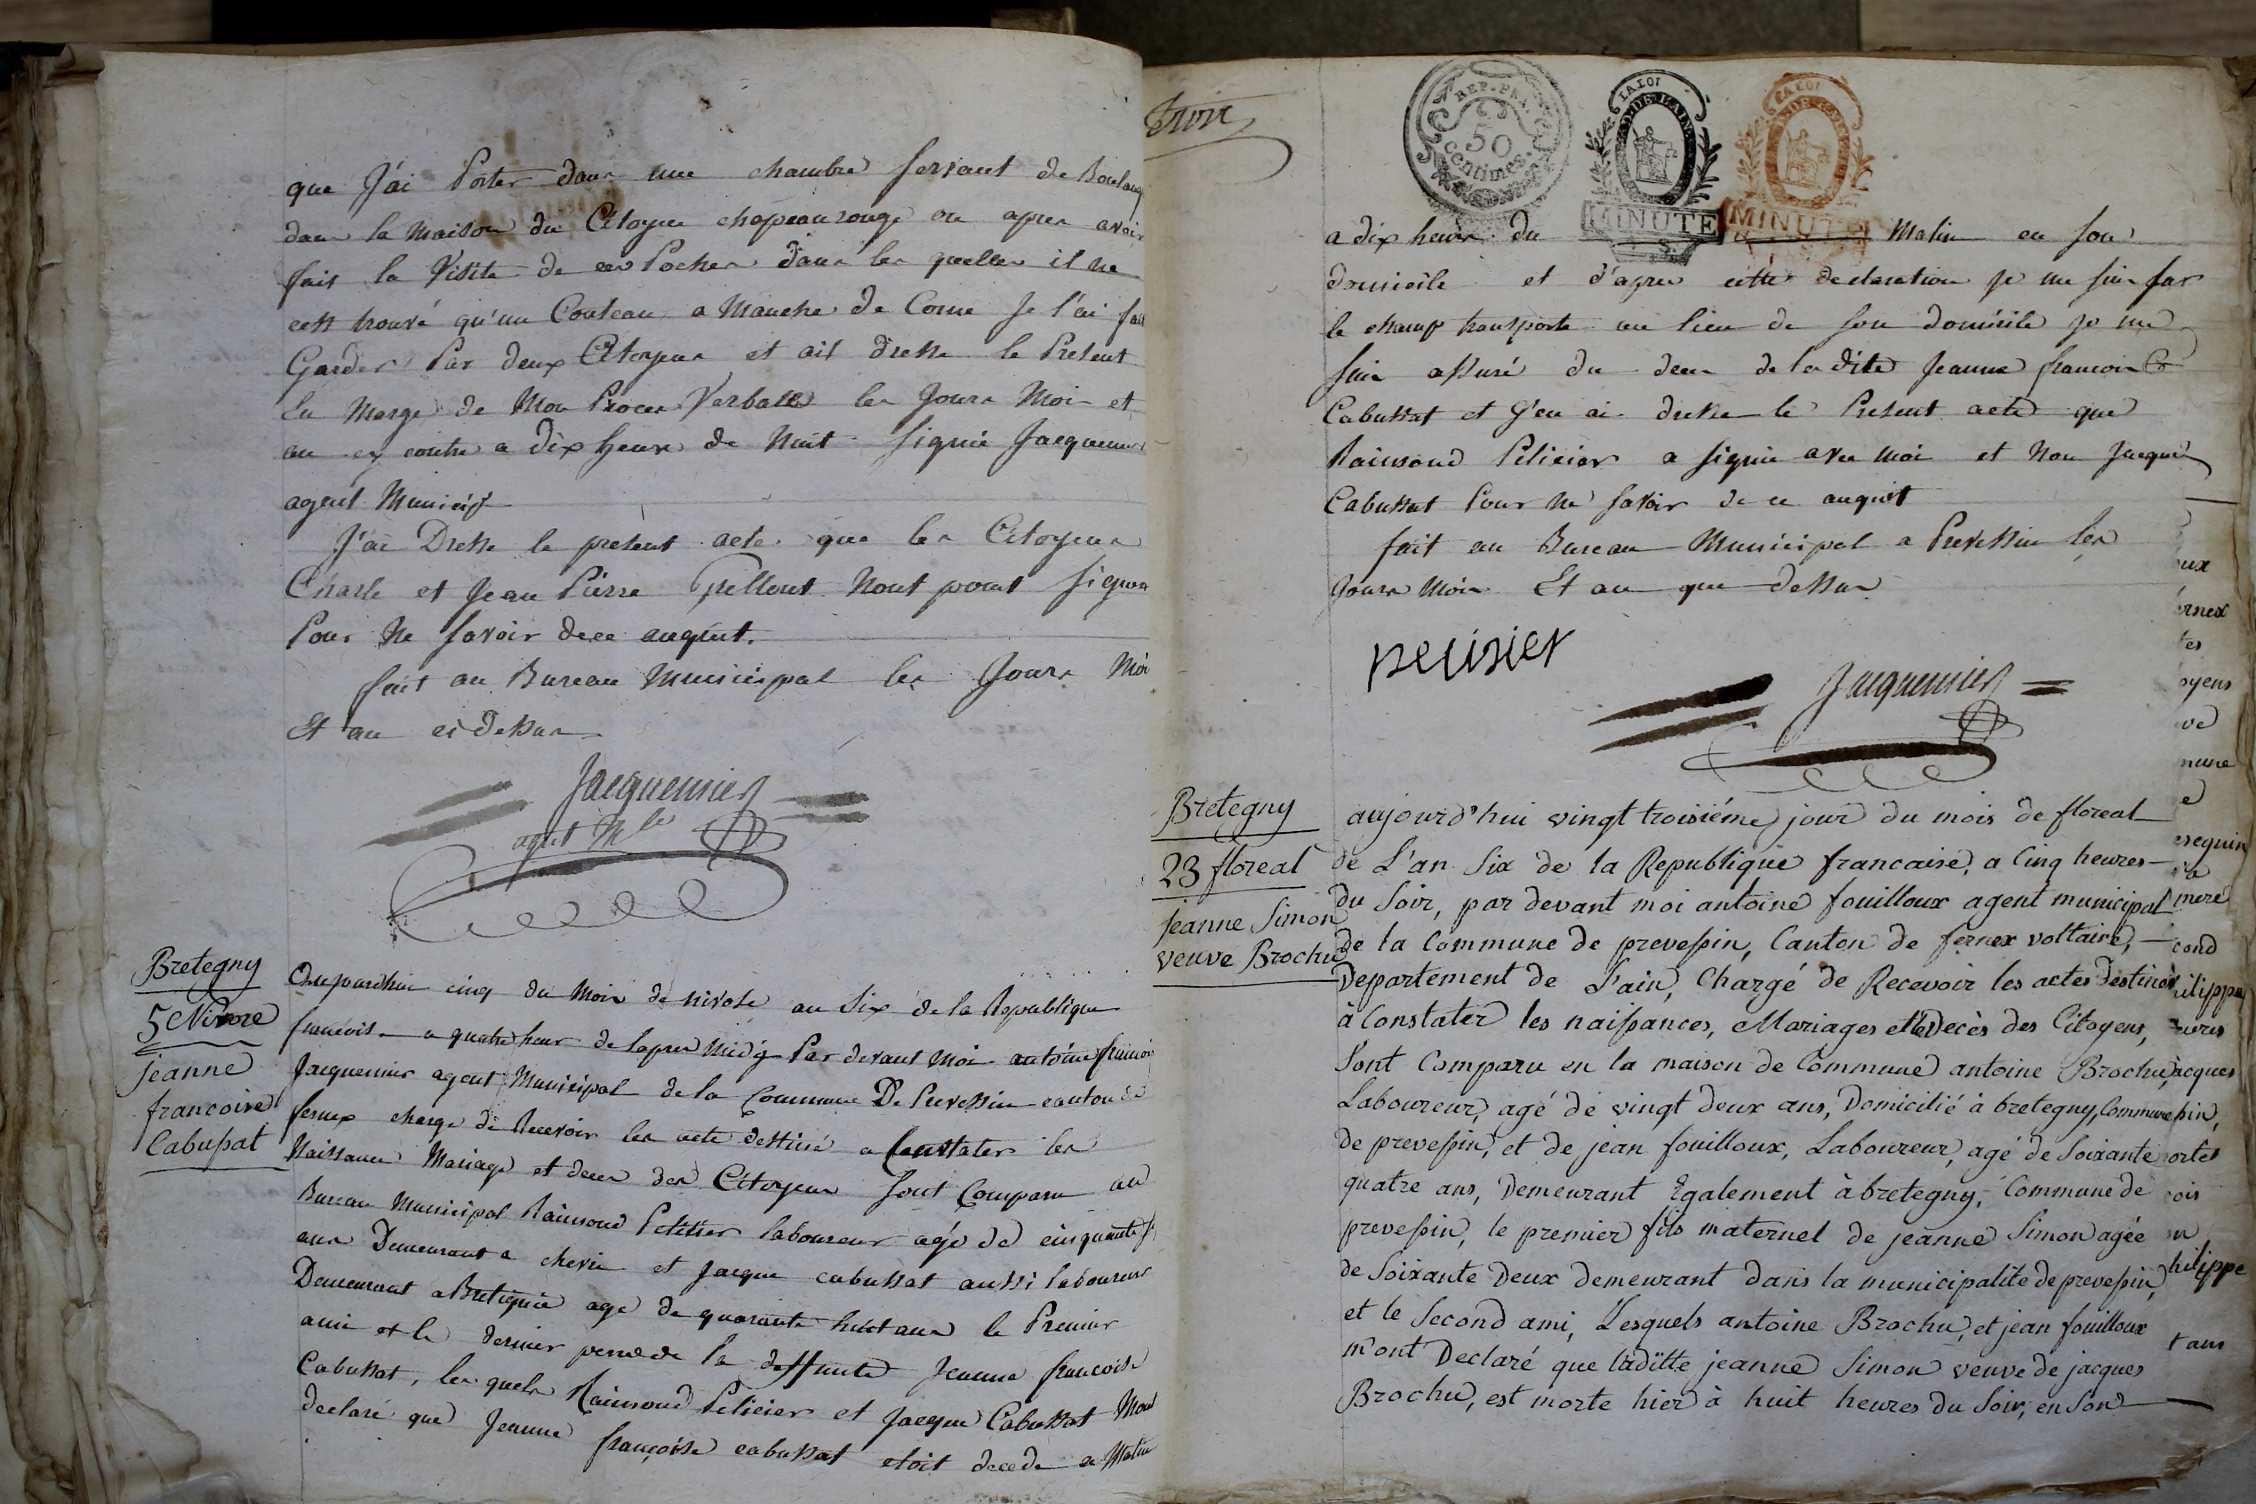 que J'ai Porter dans une chambre servant de Boulang
dans la Maison du Citoyen chapeaurouge ou apres avoir
fait la Visite de ces Poches dans les quelles il ne
cest trouvé qu'un Couteau a Manche de Corne Je l'ai fait
Garder Par deux Citoyens et ait dresse le Present
En Marge de Mon Proces Verballe les Jours Mois et
an cy contre a dix heure de Nuit Signié Jacquemier
agent Municip
J'ai Dresse le present acte que les Citoyens
Charle et Jean Pierre Pellout Nont point Signer
Pour Ne savoir de ce anquist.
fait au Bureau Municipal les Jours Moi
Et an ci Dessus
Jacquemier
agent Mle
Bretegny
5 Nivose
jeanne
francoise
Cabussat
Aujourdhui cinq du Mois de nivose an Six de la Republique
francoise a quatre heur de lapres Midy Par devant Moi antoine francoi
Jacquemier agent Municipal de la Commune De Prevessin canton de
fernex charge de Recevoir les acte destiné a Constater les
Naissance Mariage et deces des Citoyens Sont Comparu au
Bureau Municipal Raimond Pelissier laboureur agé de cinquante
ans Demeurant a chevri et Jacque cabussat aussi laboureur
Demeurant a Bretignié age de quarante huit ans le Premier
ami et le dernier pere de la deffunte Jeanne francoise
Cabussat, les quels Raimond Pelicier et Jacque Cabussat Mon
declaré que Jeanne françoise cabussat etoit decede ce Matin
Trois
REP. FRA.
50
Centimes.
LA LOI
DE L'AIN
MINUTE
LA LOI
DE L'AIN
MINUTE
a dix heure du Matin en Son
domicile et d'apres cette declaration je me suis sur
le champ transporte au lieu de son domicile je me
suis assuré du deces de la dite Jeanne francoise
Cabussat et J'en ai dresse le Present acte que
Raimond Pelicier a signié avec moi et Non Jacque
Cabussat Pour Ne savoir de ce anquist
fait au Bureau Municipal a Prevessin les
Jours Mois Et an que dessus
pelisier
Jacquemier
Bretegny
23 floreal
jeanne Simon
veuve Brochu
aujourd'hui vingt troisiéme jour du mois de floreal
de L'an Six de la Republique francaise, a Cinq heures
du Soir, par devant moi antoine fouilloux agent municipal
de la Commune de prevessin, Canton de fernex voltaire,
Departement de L'ain, Chargé de Recevoir les actes destinés
à Constater les naissances, Mariages et Decès des Citoyens,
Sont Comparu en la maison de Commune antoine Brochu,
Laboureur, agé de vingt deux ans, Domicilié à bretegny, Commune
de prevessin, et de jean fouilloux, Laboureur, agé de Soixante
quatre ans, Demeurant Egalement à bretegny, Commune de
prevessin, le premier fils maternel de jeanne Simon agée
de Soixante Deux demeurant dans la municipalité de prevessin,
et le Second ami, Lesquels antoine Brochu, et jean fouilloux
m'ont Declaré que laditte jeanne Simon veuve de jacques
Brochu, est morte hier à huit heures du Soir, en Son
ux
ernex
tes
oyens
ve
mune
e
esequin
mere
cond
ilippe
acques
pin,
ortes
ois
n
hilippe
t ans